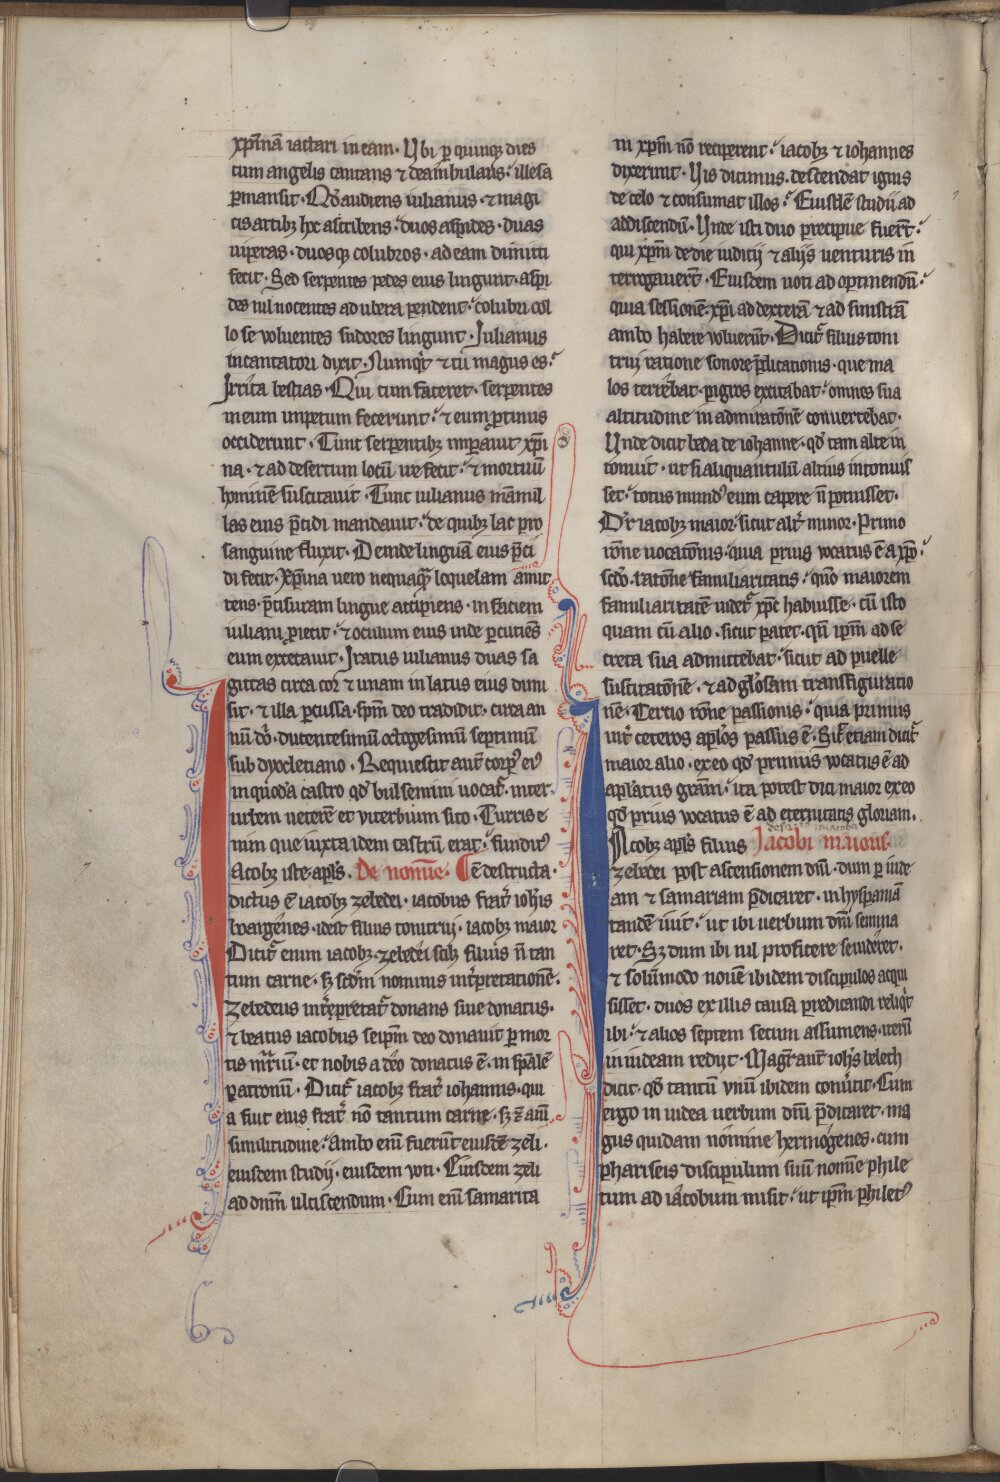 xp̄ianā iactari in eam. Ubi ꝑ quinqꝫ dies
cum angelis cantans ⁊ deambulans: illesa
ꝑmansit. Qd̄ audiens iulianus. ⁊ magi
cis artibꝫ hoc ascribens: duos aspides. duas
uiperas. duosqꝫ colubros. ad eam dimitti
fecit. Sed serpentes pedes eius lingunt. aspi
des nil nocentes ad ubera pendent. colubri col
lo se voluentes sudores lingunt. Iulianus
incantatori dixit. Numqͥd ⁊ tu magus es.
Irrita bestias. Qui cum faceret. serpentes
in eum impetum fecerunt. ⁊ eum ꝓtinus
occiderunt. Tunc serpentibꝫ imꝑauit xp̄i
na. ⁊ ad desertum locū ire fecit. ⁊ mortuū
hominē suscitauit. Tunc iulianus mamil
las eius p̄cidi mandauit. de quibꝫ lac pro
sanguine fluxit. Deinde linguā eius p̄ci
di fecit. Xp̄ina uero nequaqᷓ loquelam amit
tens. p̄cisuram lingue accipiens. in faciem
iuliani ꝓiecit. ⁊ oculum eius inde ꝑcutiēs
eum excecauit. Iratus iulianus duas sa
gittas circa cor ⁊ unam in latus eius dimi
sit. ⁊ illa ꝑcussa. sp̄m deo tradidit. circa an
nū dn̄i. ducentesimū octogesimū septimū
sub dyocletiano. Requiescit aut̄ corpꝰ eiꝰ
in quodā castro qd̄ bulsemini uocat᷑. inter
urbem ueterē et viterbium sito. Turris e
nim que iuxta idem castrū erat. funditꝰ
Iacobꝫ iste apl̄s. De nomīe. ē destructa.
dictus ē iacobꝫ zebedei. iacobus frat̄ ioh̄is
boargenes. idest filius tonitrui. iacobꝫ maior
Dicit᷑ enim iacobꝫ zebedei scilꝫ filius n̄ tan
tum carne. sꝫ scd̄m nominis int̄pretationē.
Zebedeus int̄pretat᷑ donans siue donatus.
⁊ beatus iacobus seip̄m deo donauit ꝑ mor
tis mr̄iū. et nobis a deo donatus ē. in sp̄alē
patronū. Dicit᷑ iacobꝫ frat̄ iohannis. qui
a fuit eius frat̄ nō tantum carne. sꝫ ⁊ aīi
similitudine. Ambo enī fuerūt eiusdē zeli.
eiusdem studij. eiusdem voti. Eiusdem zeli
ad dn̄m ulciscendum. Cum enī samarita
ni xp̄m nō reciperent. iacobꝫ ⁊ iohannes
dixerunt. Uis dicimus. descendat ignis
de celo ⁊ consumat illos. Eiusdē studii ad
addiscendū. Unde isti duo precipue fuer̄t.
qui xp̄m de die iudicij ⁊ alijs uenturis in
terrogauer̄t. Eiusdem uoti ad optinendū.
quia sessionē xp̄i ad dexterā ⁊ ad sinistrā
ambo habere voluerūt. Dicit᷑ filius toni
trui ratione sonore p̄dicationis. que ma
los terrebat. pigros excitabat. omnes sua
altitudine in admiratōnē conuertebat.
Unde dicit beda de iohanne. qd̄ tam alte in
tonuit. ut si aliquantulū altius intonuis
set. totus mundꝰ eum capere n̄ potuisset.
Dr̄ iacobꝫ maior. sicut alt̄ minor. Primo
rōne uocatōnis. quia prius vocatus ē a xp̄o.
scd̄o. ratōne familiaritatis. quō maiorem
familiaritatē uidet᷑ xp̄c habuisse. cū isto
quam cū alio. sicut patet. qn̄ ip̄m ad se
creta sua admittebat. sicut ad puelle
suscitatōnē. ⁊ ad gl̄osam transfiguratio
nē. Tercio rōne passionis. quia primus
int̄ ceteros apl̄os passus ē. Sic̄ etiam dicit᷑
maior alio. ex eo qd̄ primus vocatus ē ad
apl̄atus grām. ita potest dici maior ex eo
qd̄ prius vocatus ē ad eternitatis gloriam.
Iacobꝫ apl̄s filius Iacobi maioris.
zebedei post ascensionem dn̄i. dum ꝑ iude
am ⁊ samariam p̄dicaret. in hyspaniā
tandē iuit. ut ibi uerbum dn̄i semina
ret. Sꝫ dum ibi nil proficere se uideret.
⁊ solūmodo nouē ibidem discipulos acqui
sisset. duos ex illis causa predicandi reliqͥt
ibi. ⁊ alios septem secum assumens. iterū
in iudeam redijt. Magr̄ aut̄ ioh̄s belech
dicit. qd̄ tantū vnū ibidem conūtit. Cum
ergo in iudea uerbum dn̄i p̄dicaret. ma
gus quidam nomine hermogenes. cum
phariseis discipulum suū nomīe phile
tum ad iacobum misit. ut ip̄m philetꝰ